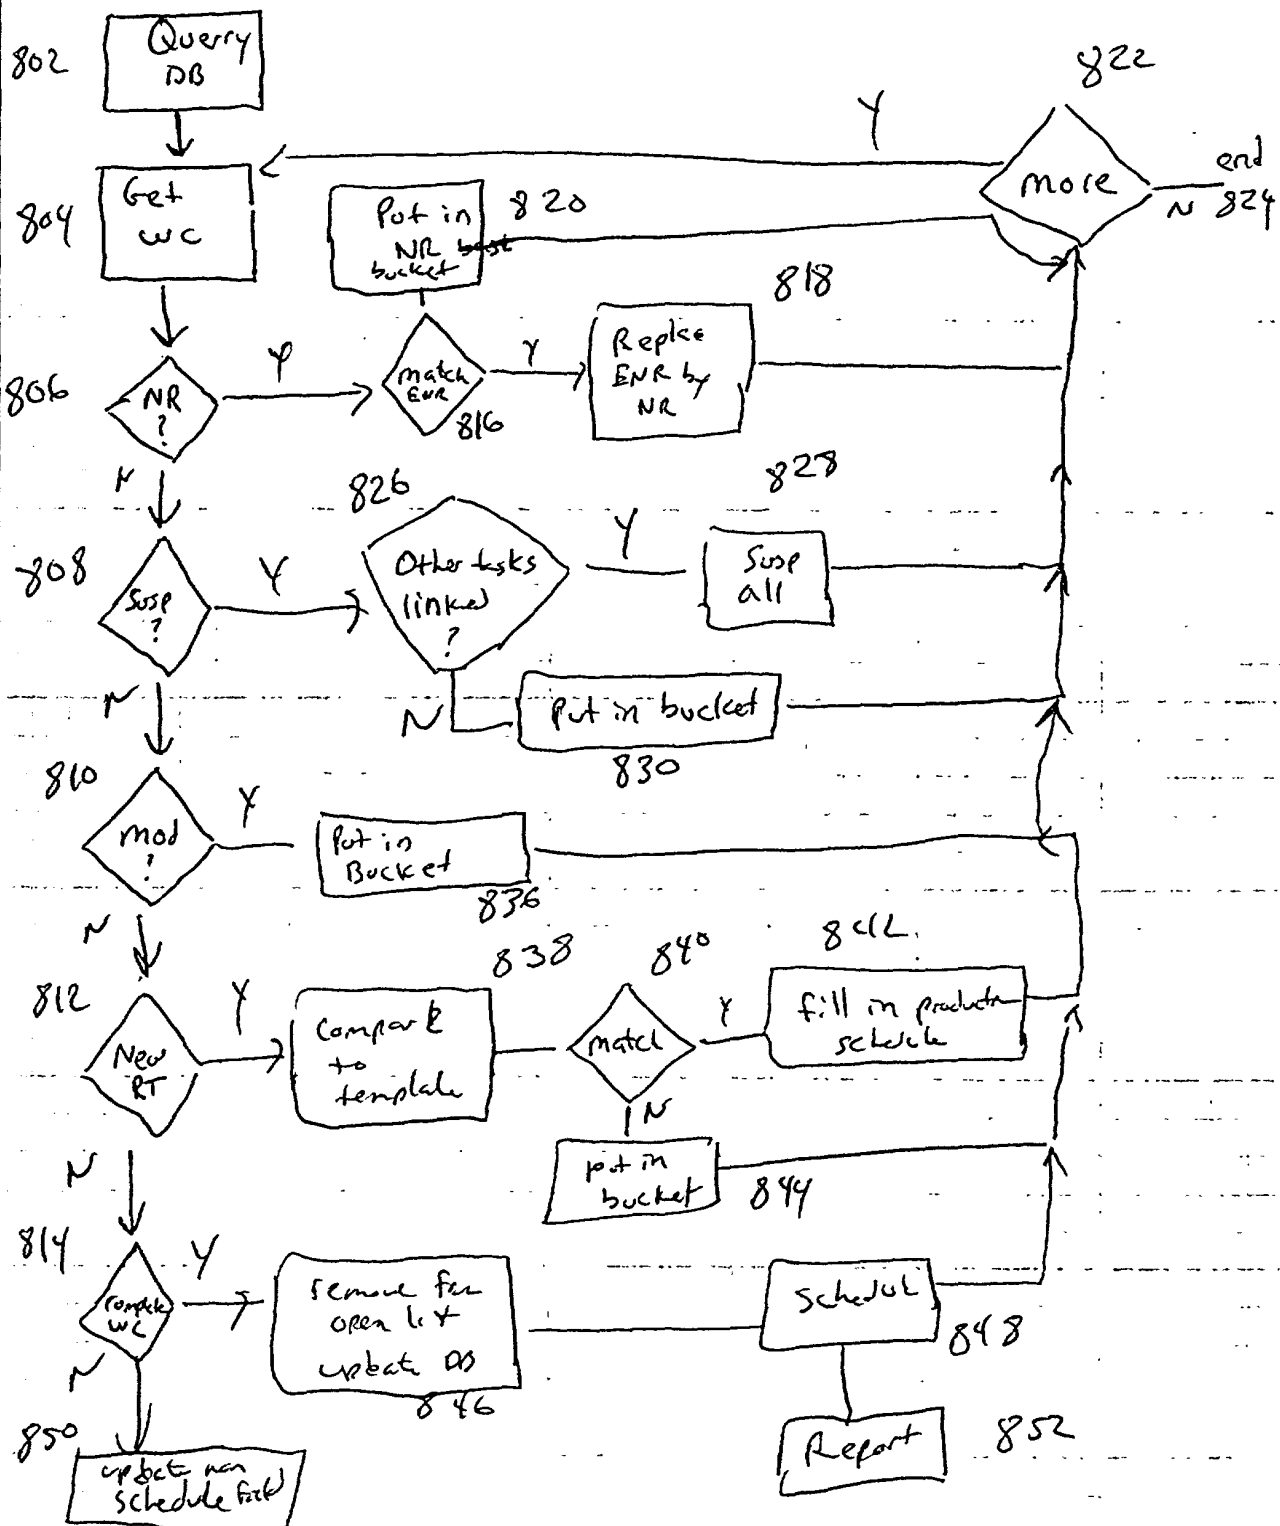 Querry
DB
802
822
Y
more
end
N 824
Get
WC
804
Put in
NR
bucket
820
818
806
NR
?
Y
match
ENR
816
Y
Replce
ENR by
NR
N
826
828
808
Susp
?
Y
Other tasks
linked
?
Y
Susp
all
N
N
Put in bucket
830
810
mod
?
Y
Put in
Bucket
836
N
838
840
842
812
New
RT
Y
Compare
to
template
match
Y
fill in producton
schedule
N
N
put in
bucket
844
814
complete
WC
Y
remove from
open list
update DB
846
Schedul
848
N
850
update non
schedule field
Report
852